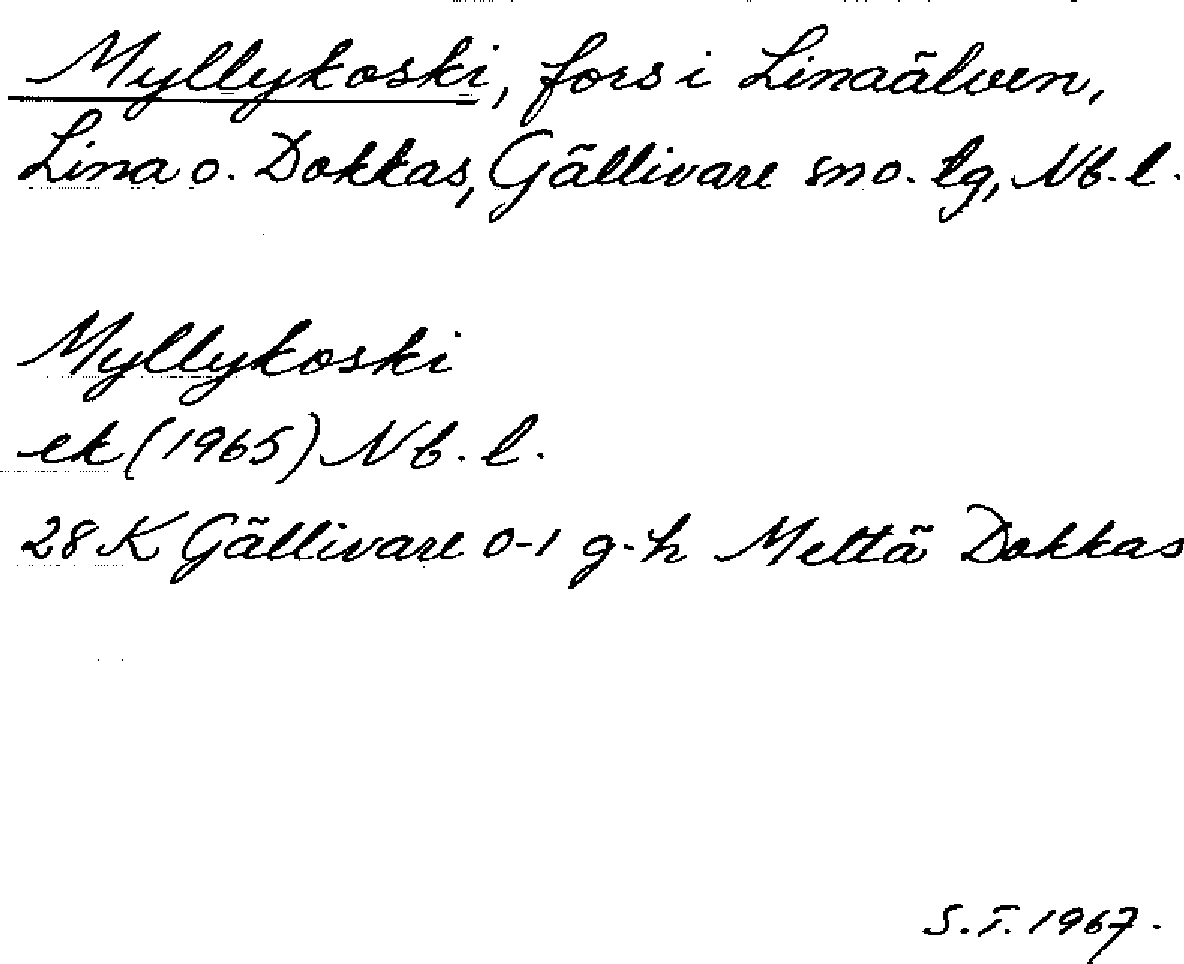 Myllykoski, fors i Linaälven,
Lina o. Dokkas, Gällivare sn o. lg, Nb. l.
Myllykoski
ek (1965) Nb. l.
28 K Gällivare 0-1 g-h Mettä Dokkas
S. F. 1967.